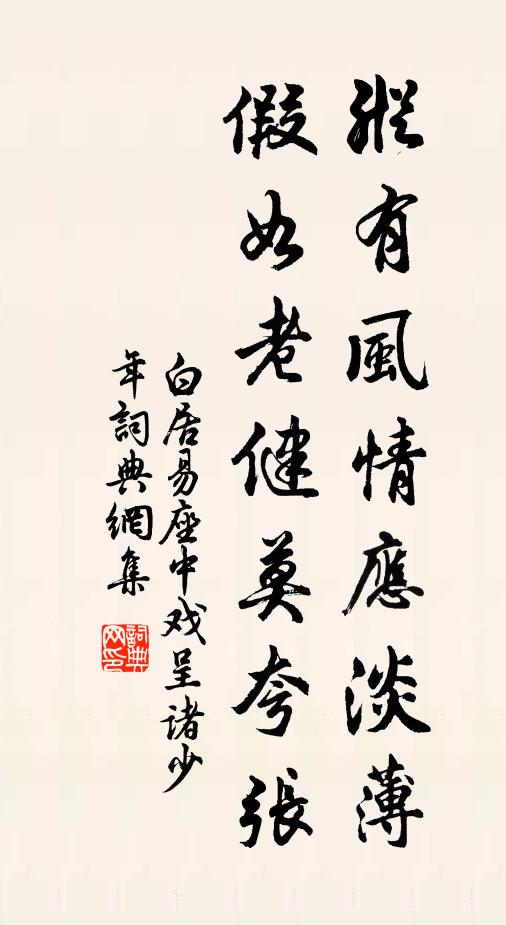 縱有風情應淡薄
假如老健莫夸張
白居易座中戏呈诸少
年詞典網集
詞典
网印